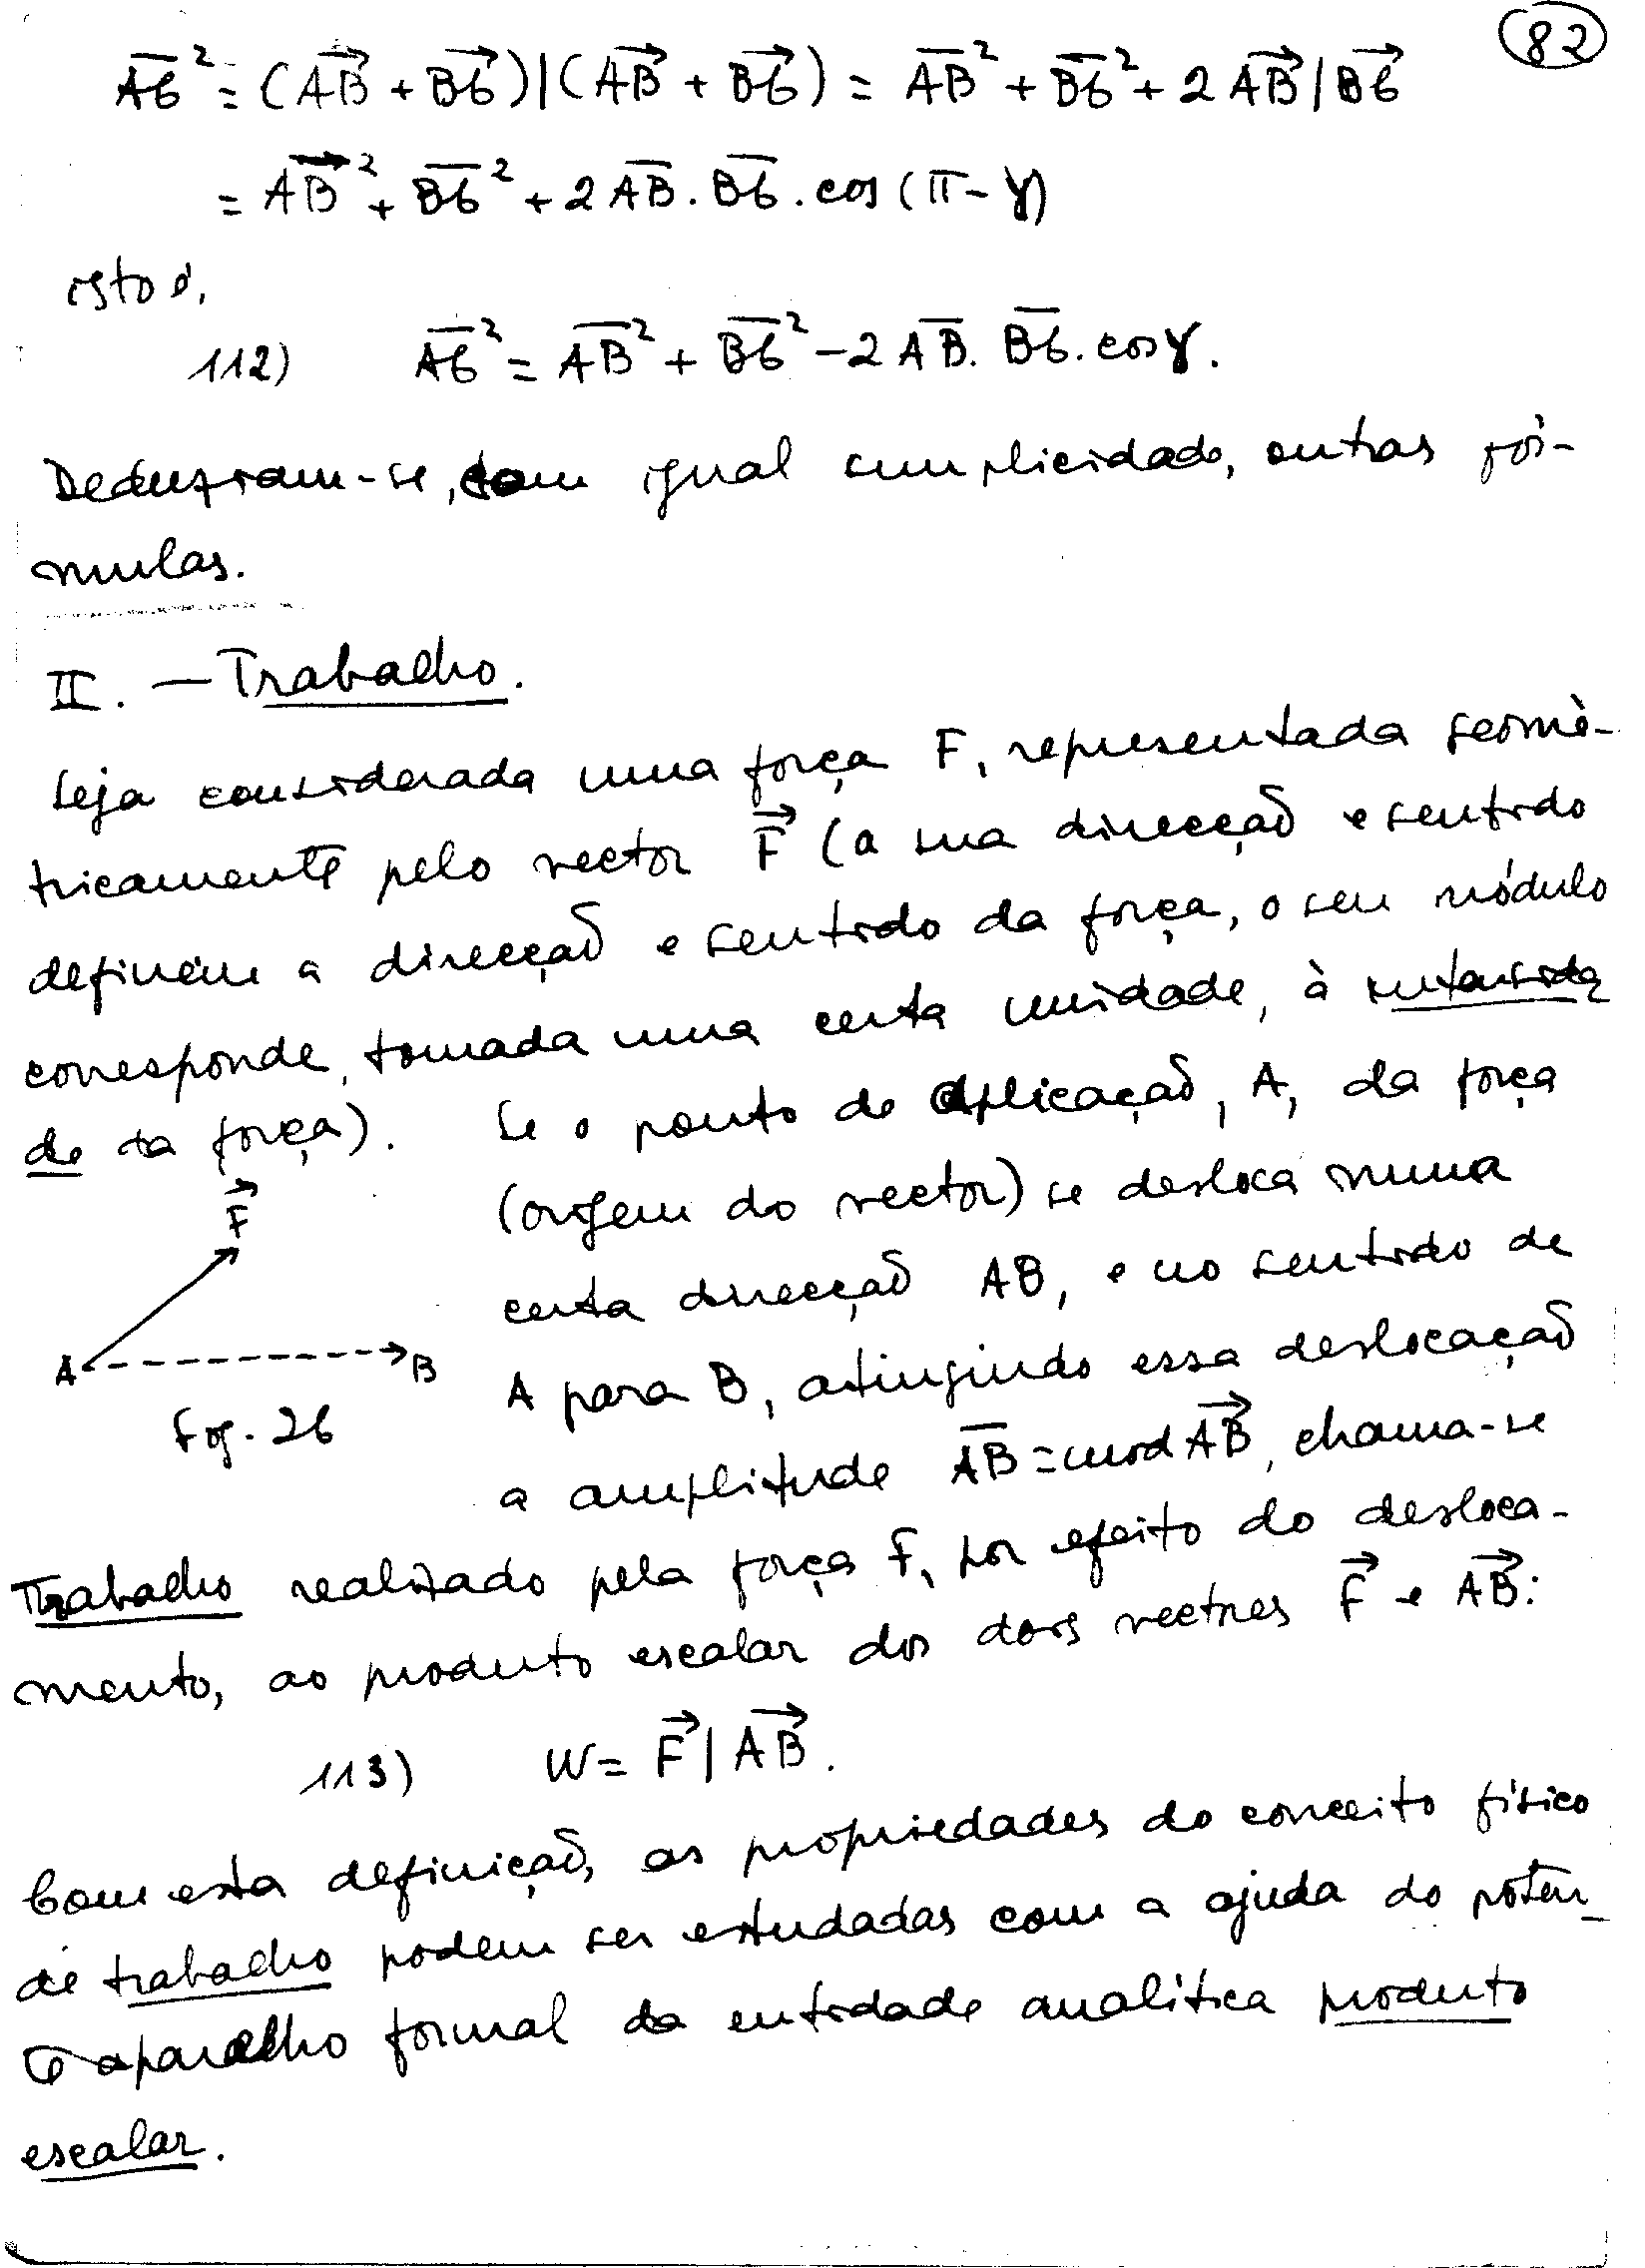 82
A̅C̅² = (A⃗B⃗ + B⃗C⃗)|(A⃗B⃗ + B⃗C⃗) = A̅B̅² + B̅C̅² + 2 A⃗B⃗|B⃗C⃗
= A⃗B⃗² + B̅C̅² + 2 A̅B̅ . B̅C̅ . cos (π - γ)
isto é,
112) A̅C̅² = A̅B̅² + B̅C̅² - 2 A̅B̅ . B̅C̅ . cos γ.
Deduziram-se, com igual simplicidade, outras fór-
mulas.
II. — Trabalho.
Seja considerada uma força F, representada geomè-
tricamente pelo vector F⃗ (a sua direcção e sentido
definem a direcção e sentido da força, o seu módulo
corresponde, tomada uma certa unidade, à intensida
de da força). Se o ponto de aplicação, A, da força
F⃗
(origem do vector) se desloca numa
certa direcção AB, e no sentido de
A B
A para B, atingindo essa deslocação
Fig. 26
a amplitude A̅B̅ = mod A⃗B⃗, chama-se
Trabalho realizado pela força F, por efeito do desloca-
mento, ao produto escalar dos dois vectores F⃗ e A⃗B⃗:
113) W = F⃗|A⃗B⃗.
Com esta definição, as propriedades do conceito físico
de trabalho podem ser estudadas com a ajuda do poten_
te aparelho formal da entidade analítica produto
escalar.